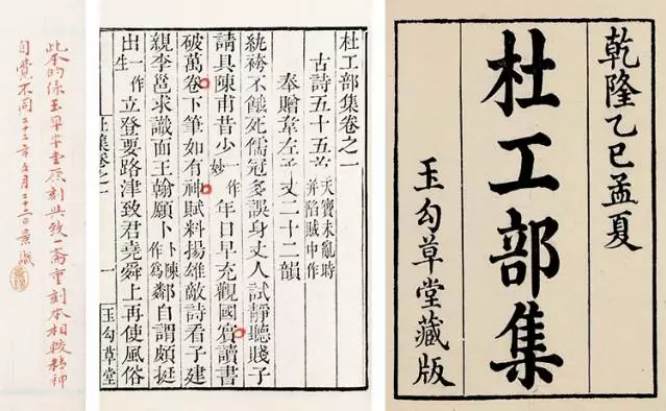 乾隆乙巳孟夏
杜工部集
玉勾草堂藏版
杜工部集卷之一
古詩五十五首 天寶未亂時
并陷賊中作
奉贈韋左丞丈二十二韻
紈袴不餓死儒冠多誤身丈人試靜聽賤子
請具陳甫昔少一作妙年日早充觀國賓讀書
破萬卷下筆如有神賦料揚雄敵詩看子建
親李邕求識面王翰願卜卜陳作為鄰自謂頗挺
出一作生立登要路津致君堯舜上再使風俗
杜集卷之一 一 玉勾草堂
此本的係玉草堂原刻與致一齋重刻本相較精神
自覺不同 二十二年五月二十二日 景